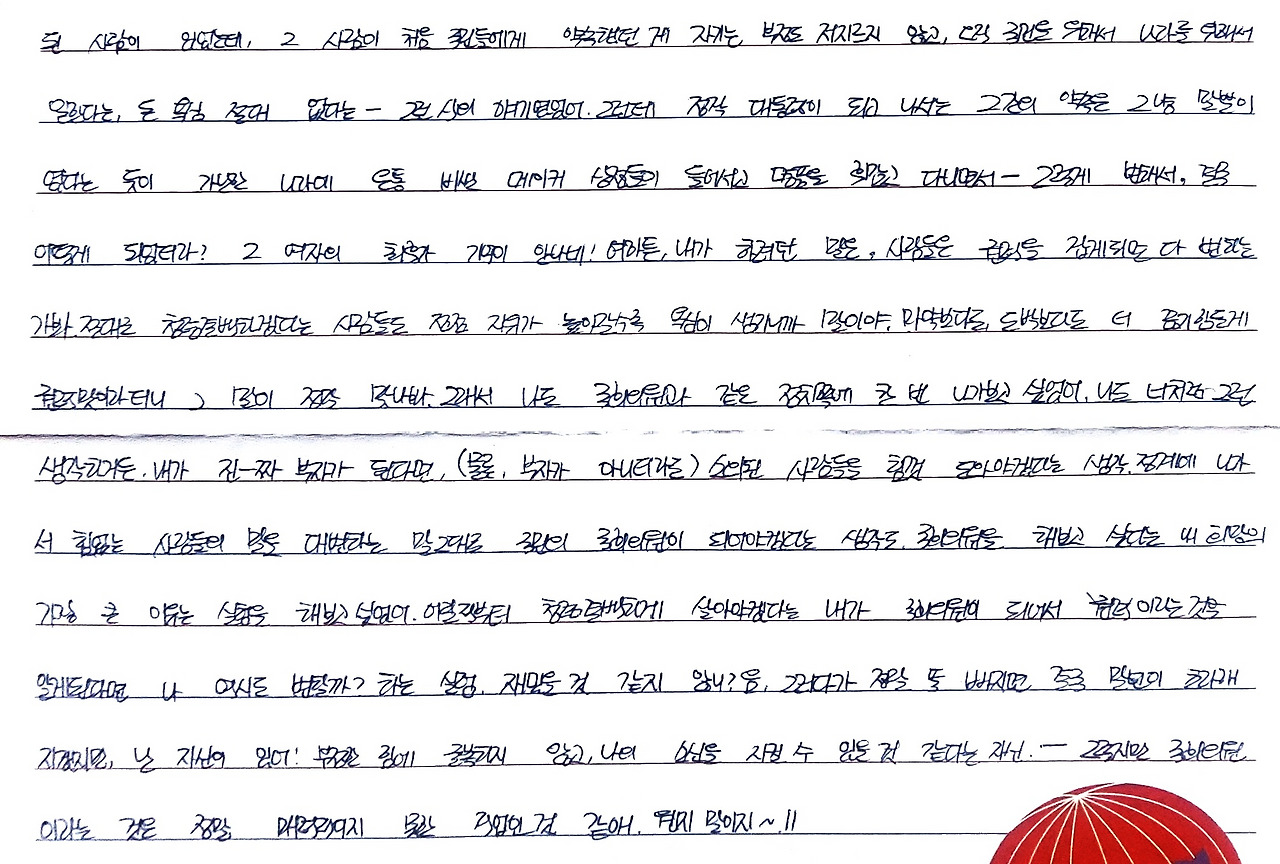 된 사람이 있었는데, 그 사람이 처음 국민들에게 약속했던 게 자기는 부정도 저지르지 않고, 오직 국민을 위해서 나라를 위해서
일한다는, 돈 욕심 절대 없다는 — 그런 식의 얘기였었어. 그런데 정작 대통령이 되고 나서는 그간의 약속은 그냥 말뿐이
었다는 듯이 가난한 나라에 온통 비싼 메이커 상점들이 들어서고 명품을 휘감고 다니면서 — 그렇게 변해서, 결국
어떻게 되었더라? 그 여자의 최후가 기억이 안나네! 여하튼, 내가 하려던 말은, 사람들은 권력을 쥐게되면 다 변하는
가봐. 절대로 청렴결백하겠다는 사람들도 점점 지위가 높아질수록 욕심이 생기니까 말이야. 마약보다도, 도박보다도 더 끊기 힘든게
권력맛이라더니 그 말이 정말 맞나봐. 그래서 나도 국회의원과 같은 정치쪽에 한 번 나가보고 싶었어. 나도 너처럼 그런
생각하거든. 내가 진-짜 부자가 된다면, (물론, 부자가 아니더라도) 소외된 사람들을 힘껏 도와야겠다는 생각. 정계에 나가
서 힘없는 사람들의 말을 대변하는 말그대로 국민의 국회의원이 되어야겠다는 생각도. 국회의원을 해보고 싶다는 내 희망의
가장 큰 이유는 실험을 해보고 싶었어. 어릴적부터 청렴결백하게 살아야겠다는 내가 국회의원이 되어서 권력이라는 것을
알게된다면 나 역시도 변할까? 하는 실험. 재밌을 것 같지 않니? 음, 그러다가 정말 돌 빠지면 결국 말년이 초라해
지겠지만, 난 자신이 있어! 부정한 힘에 굴복하지 않고, 나의 소신을 지킬 수 있을 것 같다는 자신. — 그렇지만 국회의원
이라는 것은 정말 매력적이지 못한 직업인 것 같아. 뭔지 말이지~!!